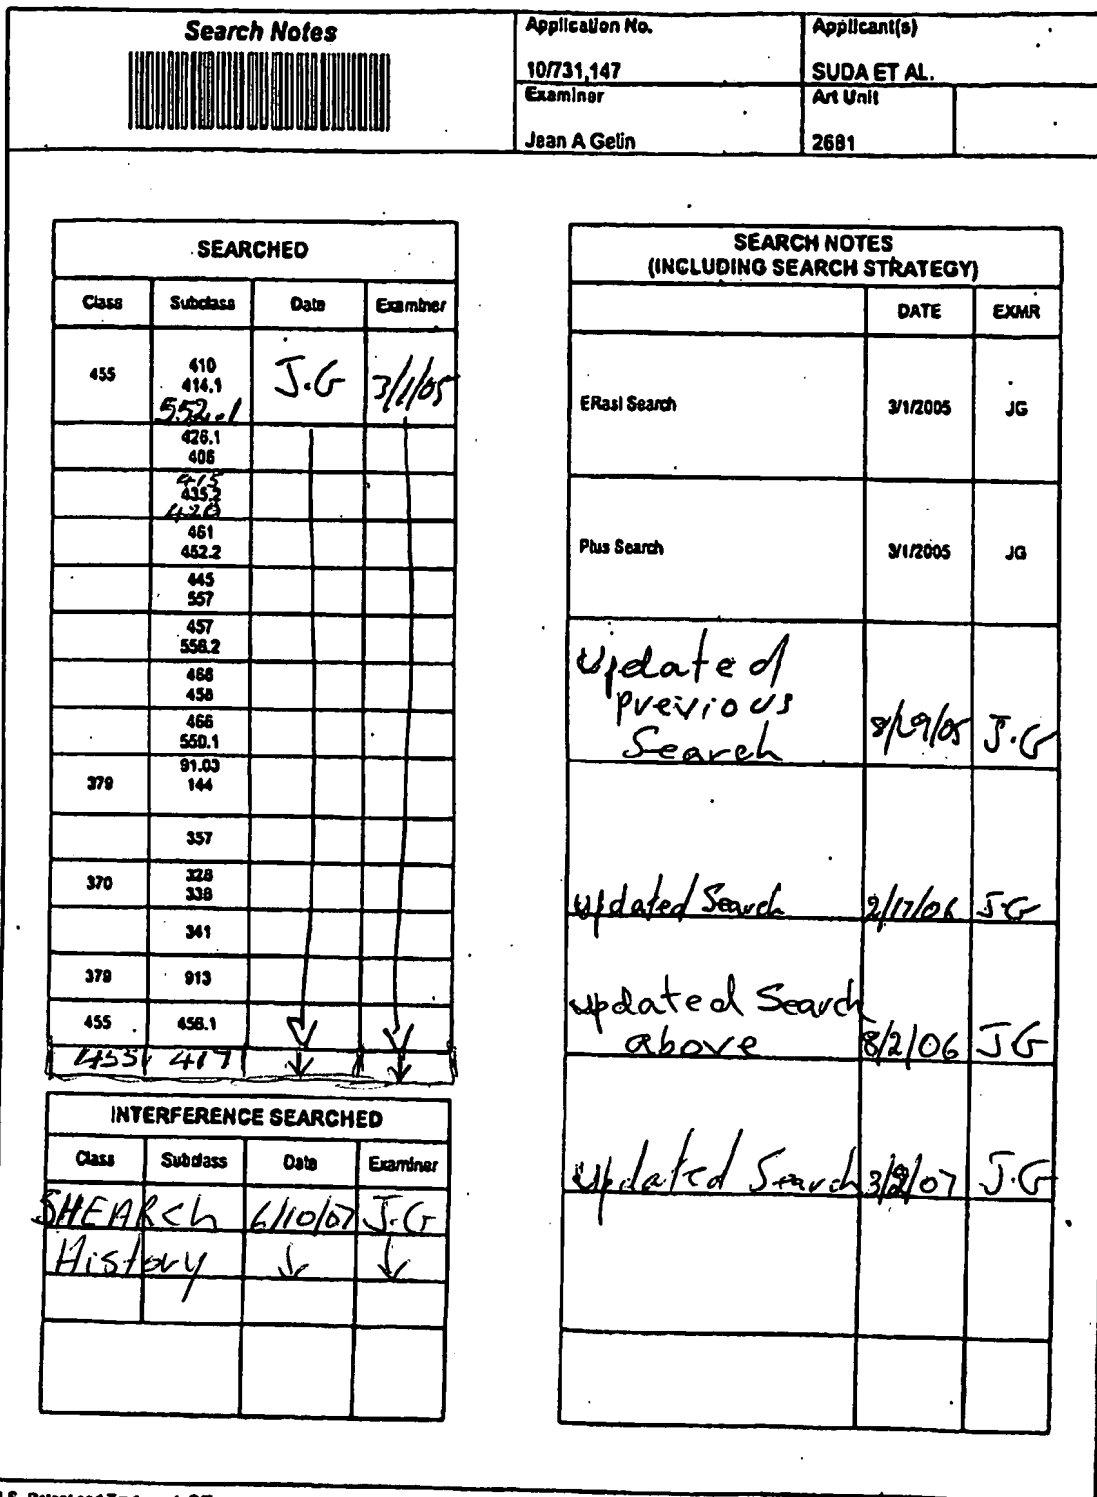 Search Notes
Application No.
Applicant(s)
10/731,147
SUDA ET AL.
Examiner
Art Unit
Jean A Gelin
2681
SEARCHED
Class Subclass Date Examiner
455 410 J.G 3/1/05
414.1
552.1
426.1
406
415
435.2
420
461
452.2
445
557
457
556.2
466
458
466
550.1
91.03
379 144
357
370 328
338
341
379 913
455 456.1
455 417
INTERFERENCE SEARCHED
Class Subclass Date Examiner
SHEARCh 6/10/07 J.G
History
SEARCH NOTES
(INCLUDING SEARCH STRATEGY)
DATE EXMR
ERasl Search 3/1/2005 JG
Plus Search 3/1/2005 JG
Updated
previous
Search 8/29/05 J.G
Updated Search 2/17/06 J.G
updated Search
above 8/2/06 JG
Updated Search 3/2/07 J.G